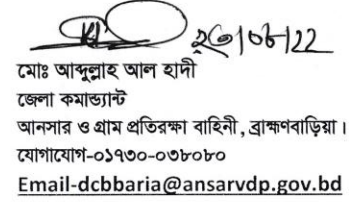 ২৩/০৮/22
মোঃ আব্দুল্লাহ আল হাদী
জেলা কমান্ড্যান্ট
আনসার ও গ্রাম প্রতিরক্ষা বাহিনী, ব্রাহ্মণবাড়িয়া।
যোগাযোগ-০১৭৩০-০৩৮০৮০
Email-dcbbaria@ansarvdp.gov.bd